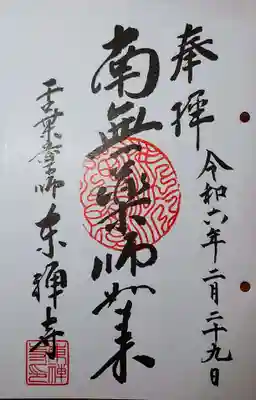 奉拝
令和六年二月二十九日
南無薬師如来
東禅寺